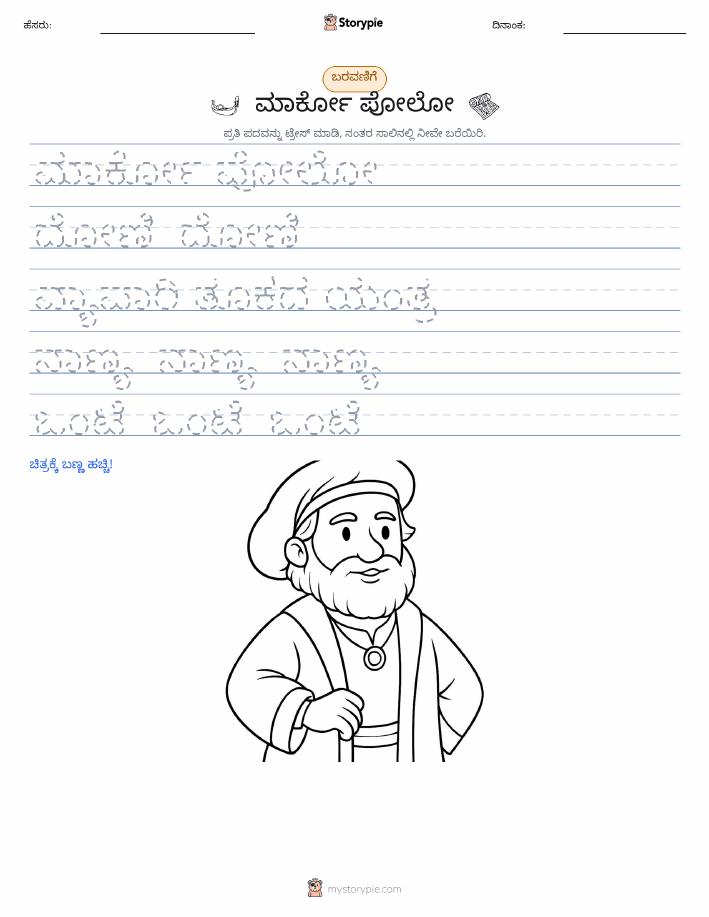 ಹೆಸರು:
Storypie
ದಿನಾಂಕ:
ಬರವಣಿಗೆ
ಮಾರ್ಕೋ ಪೋಲೋ
ಪ್ರತಿ ಪದವನ್ನು ಟ್ರೇಸ್ ಮಾಡಿ, ನಂತರ ಸಾಲಿನಲ್ಲಿ ನೀವೇ ಬರೆಯಿರಿ.
ಮಾರ್ಕೋ ಪೋಲೋ
ದೋಣಿ ದೋಣಿ
ವ್ಯಾಪಾರಿ ತೂಕದ ಯಂತ್ರ
ನಾಣ್ಯ ನಾಣ್ಯ ನಾಣ್ಯ
ಒಂಟೆ ಒಂಟೆ ಒಂಟೆ
ಚಿತ್ರಕ್ಕೆ ಬಣ್ಣ ಹಚ್ಚಿ!
mystorypie.com